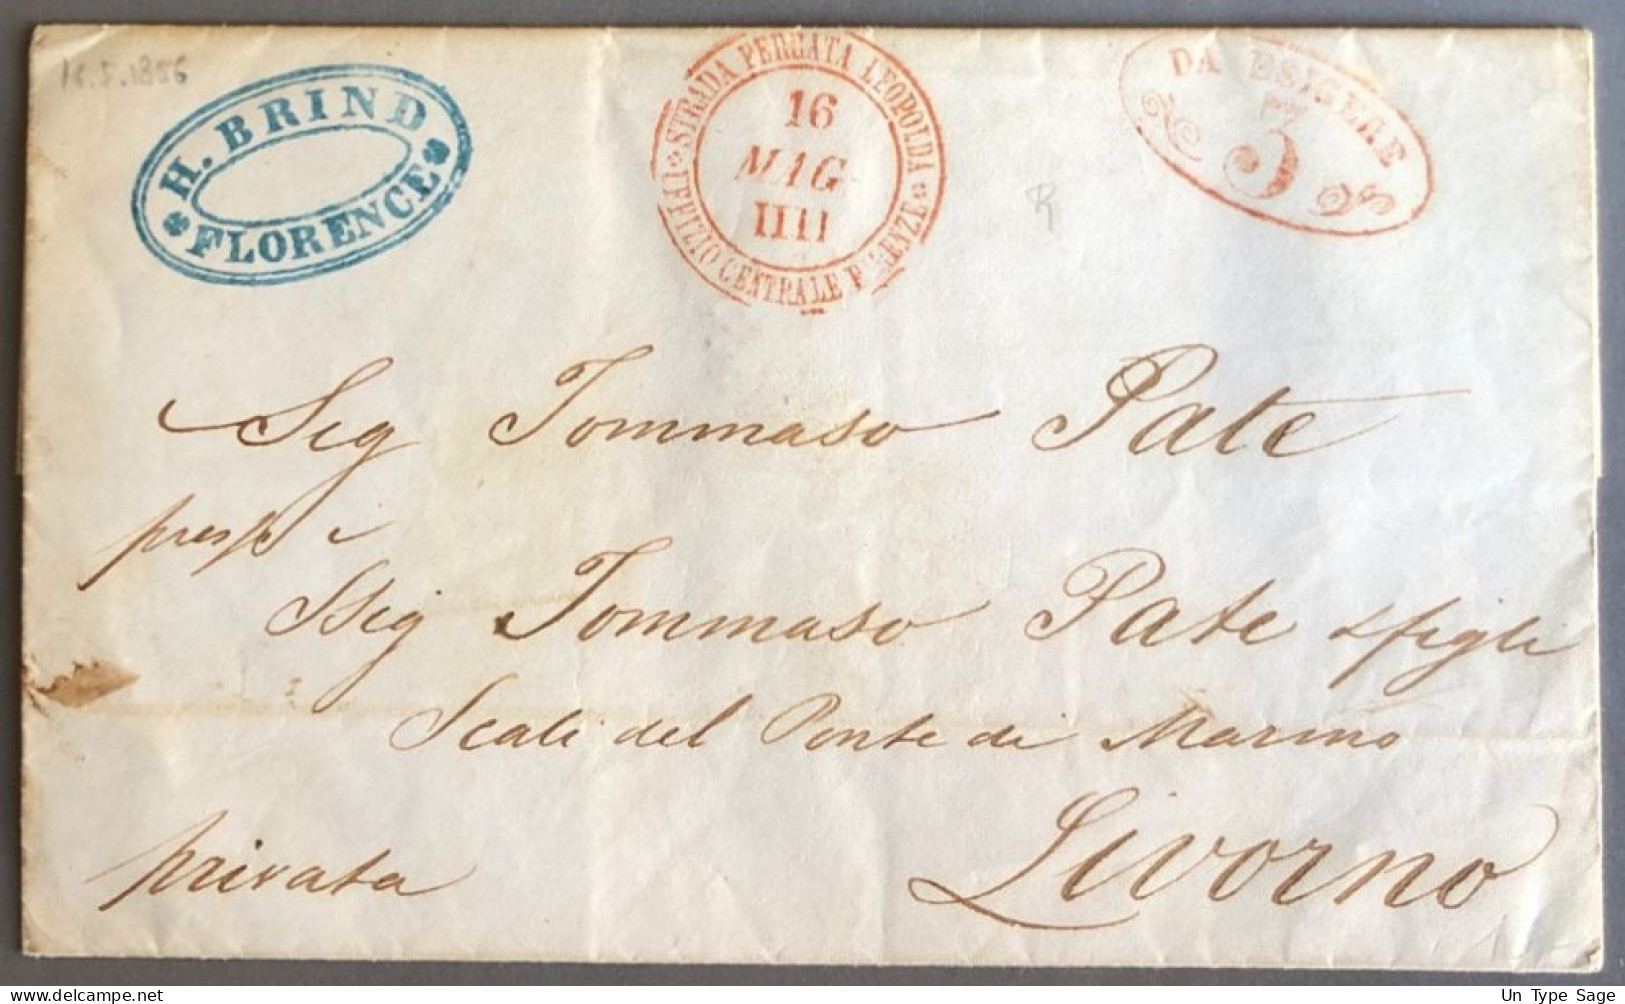 16.5.1856
H. BRIND
FLORENCE
STRADA FERRATA LEOPOLDA
16
MAG
IIII
UFFIZIO CENTRALE FIRENZE
DA ESIGERE
3
Sig Tommaso Pate
presso i
SSig Tommaso Pate e figli
Scali del Ponte di Marmo
Livorno
privata
delcampe.net
Un Type Sage